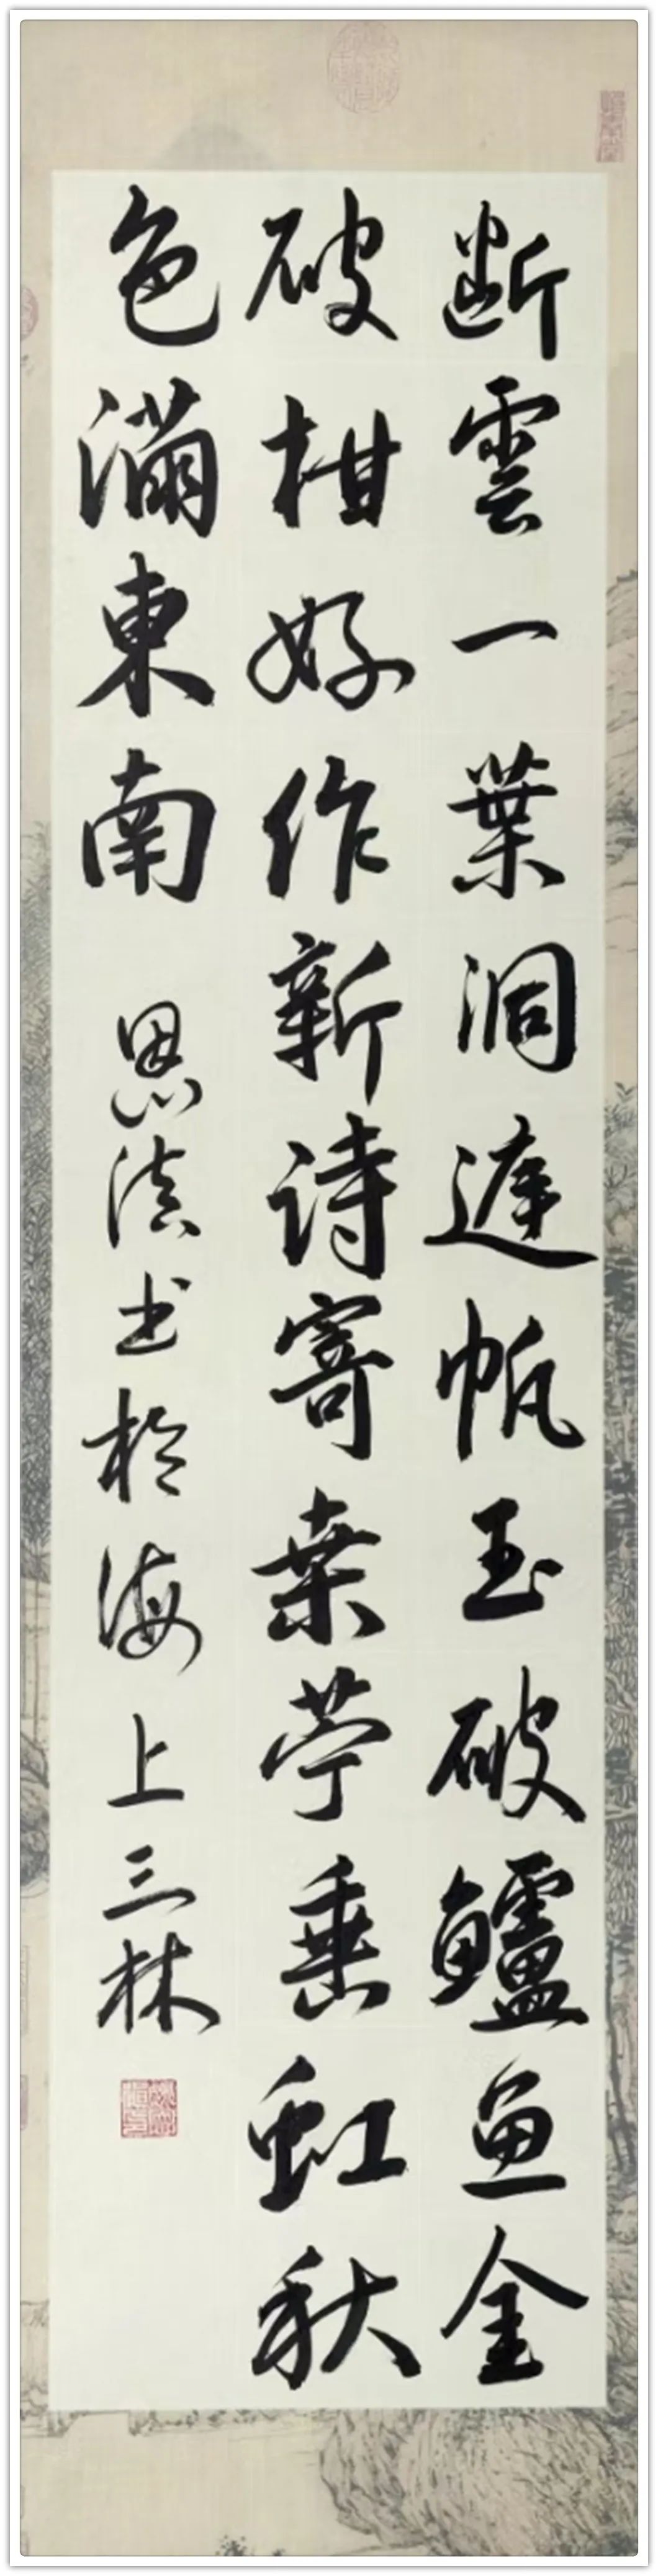 断雲一葉洞庭帆玉破鱸魚金
破柑好作新诗寄桒苧垂虹秋
色滿東南 书於海上三林